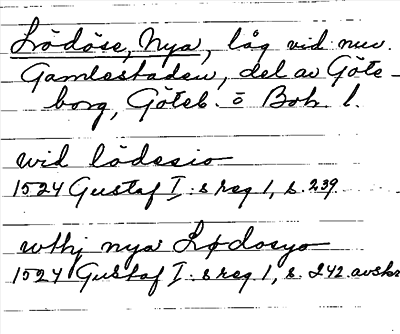 Lödöse, Nya, låg vid nuv.
Gamlestaden, del av Göte-
borg, Göteb. o Boh. l.
wid lödesio
1524 Gustaf I:s reg 1, s. 239
wthj nya Lødosyo
1524 Gustaf I:s reg 1, s. 242 avskr